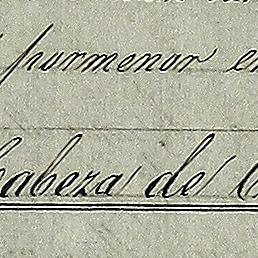 parmenor en
Cabeza de